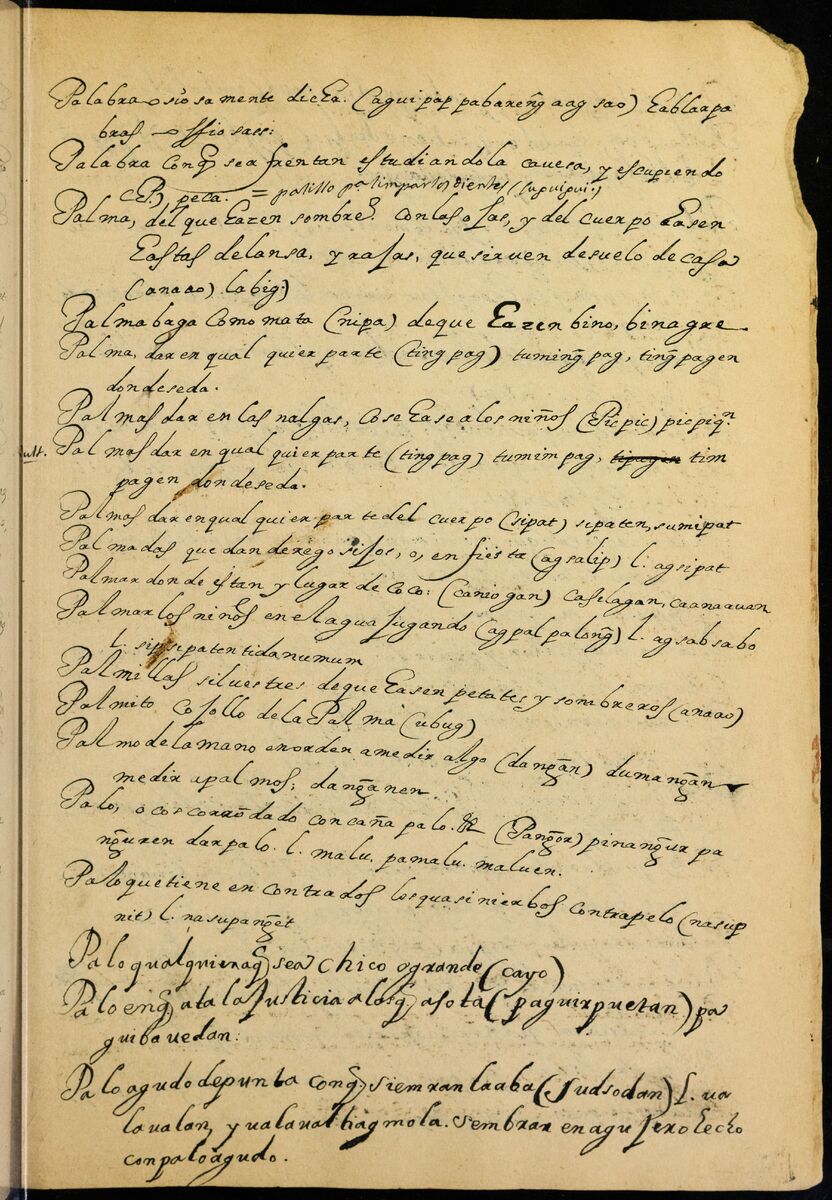 Palabra osiosa mente dicha. (agui pap pabareng̃ aag sao) hablar pa
bras ossiosas:
Palabra Conq̃ se afrentan estudiando la cavesa, y escupiendo
(P.) peca. = palillo pa limpar los dientes (supuipui.)
Palma, del que hazen sombreº. con las ojas, y del cuerpo hasen
hastas de lansa, y rajas, que sirven de suelo de casa
(anaao) labig.)
Palma baga Como mata (nipa) de que hazen bino, binagre
Palma, dar en qual quier parte (ting pag) tuming̃ pag, ting̃ pagen
donde se da.
Palmas dar en las nalgas, Cose hase a los niños (Picpic) picpiq.n
ult. Palmas dar en qual quier parte (ting pag) tumim pag, tipagen tim
pagen donde se da.
Palmas dar en qual quier parte del cuerpo (sipat) sipaten, sumipat
Palmadas que dan de regosijos, o, en fiesta (ag salip) l. agsipat
Palmar donde estan y lugar de Coco: (caniogan) Casilagan, caanaauan
Palmar los niños en el agua Jugando (ag pal palong̃) l. ag sab sabo
l. sipsipaten ti danumum
Palmillas silvestres de que hasen petates y sombreros (anaao)
Palmito Cogollo de la Palma (ubug)
Palmo de la mano en orden a medir algo (dang̃an) dumang̃an
medir a palmos; dang̃anen.
Palo, o coscorrõ dado con caña palo. (Pang̃or) pinang̃ur pa
ng̃uren dar palo. l. malu. pamalu. maluen.
Palo que tiene en contrados los quasi nierbos contrapelo (nasup
nit) l. nasupang̃et
Palo qualquiera q̃ sea chico o grande (cayo)
Palo enq̃ ata la Justicia a los q̃ asota (paguirpuetan) pa
guibavedan.
Palo agudo de punta conq̃ siemran la aba (Sudsodan) l. ua
laualan, y ualaualtiagmola. Sembrar en agujero hecho
con palo agudo.